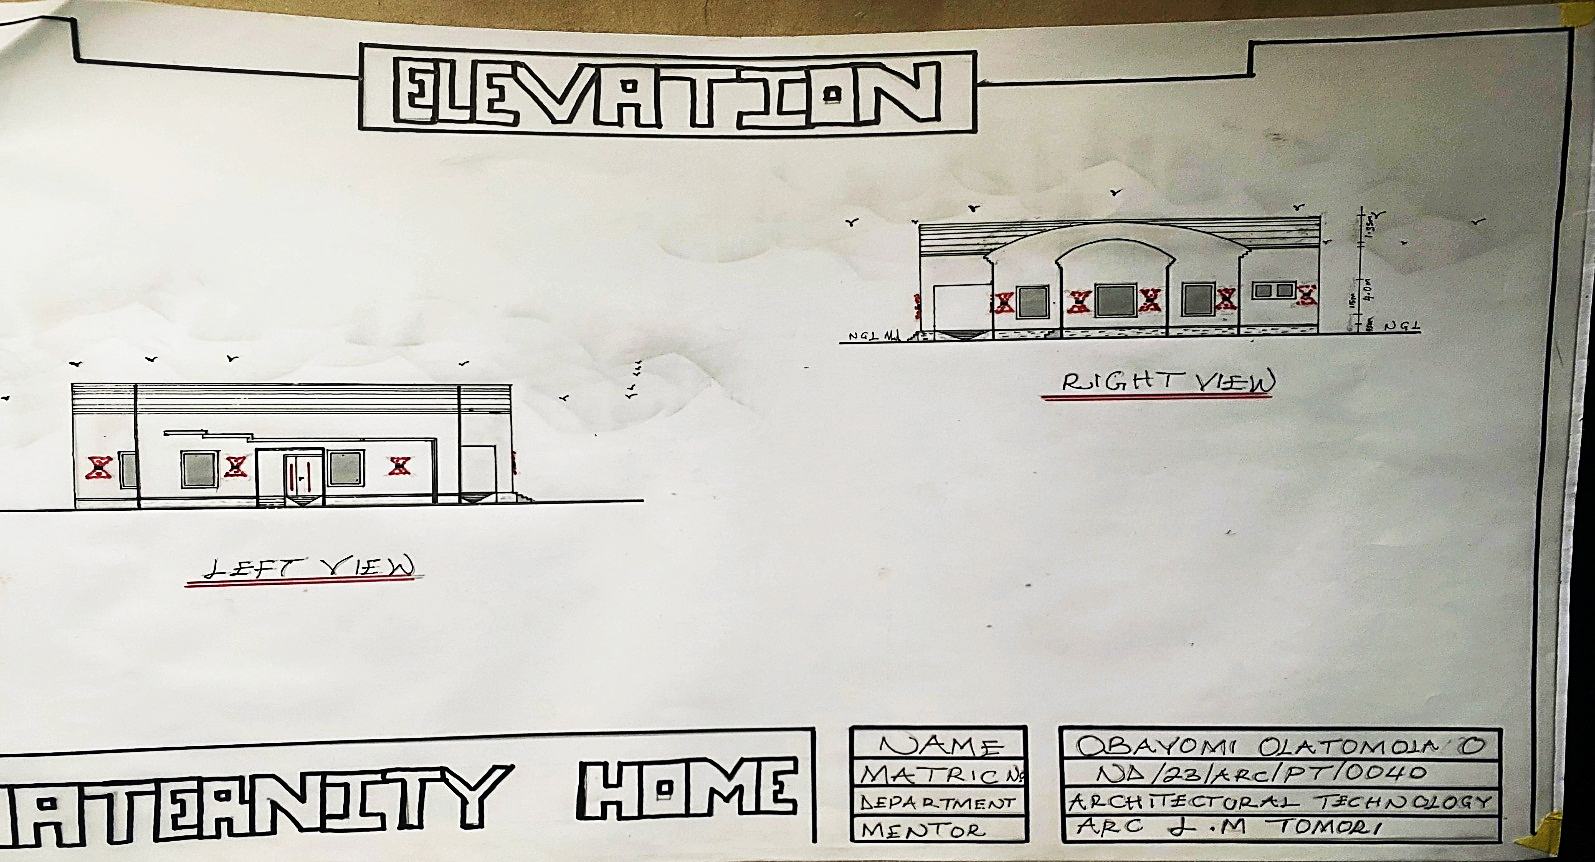 ELEVATION
1.35m
4.0m
NGL
NGL
RIGHT VIEW
LEFT VIEW
ATERNITY HOME
NAME OBAYOMI OLATOMOLA O
MATRIC No ND/23/ARC/PT/0040
DEPARTMENT ARCHITECTURAL TECHNOLOGY
MENTOR ARC L.M TOMORI